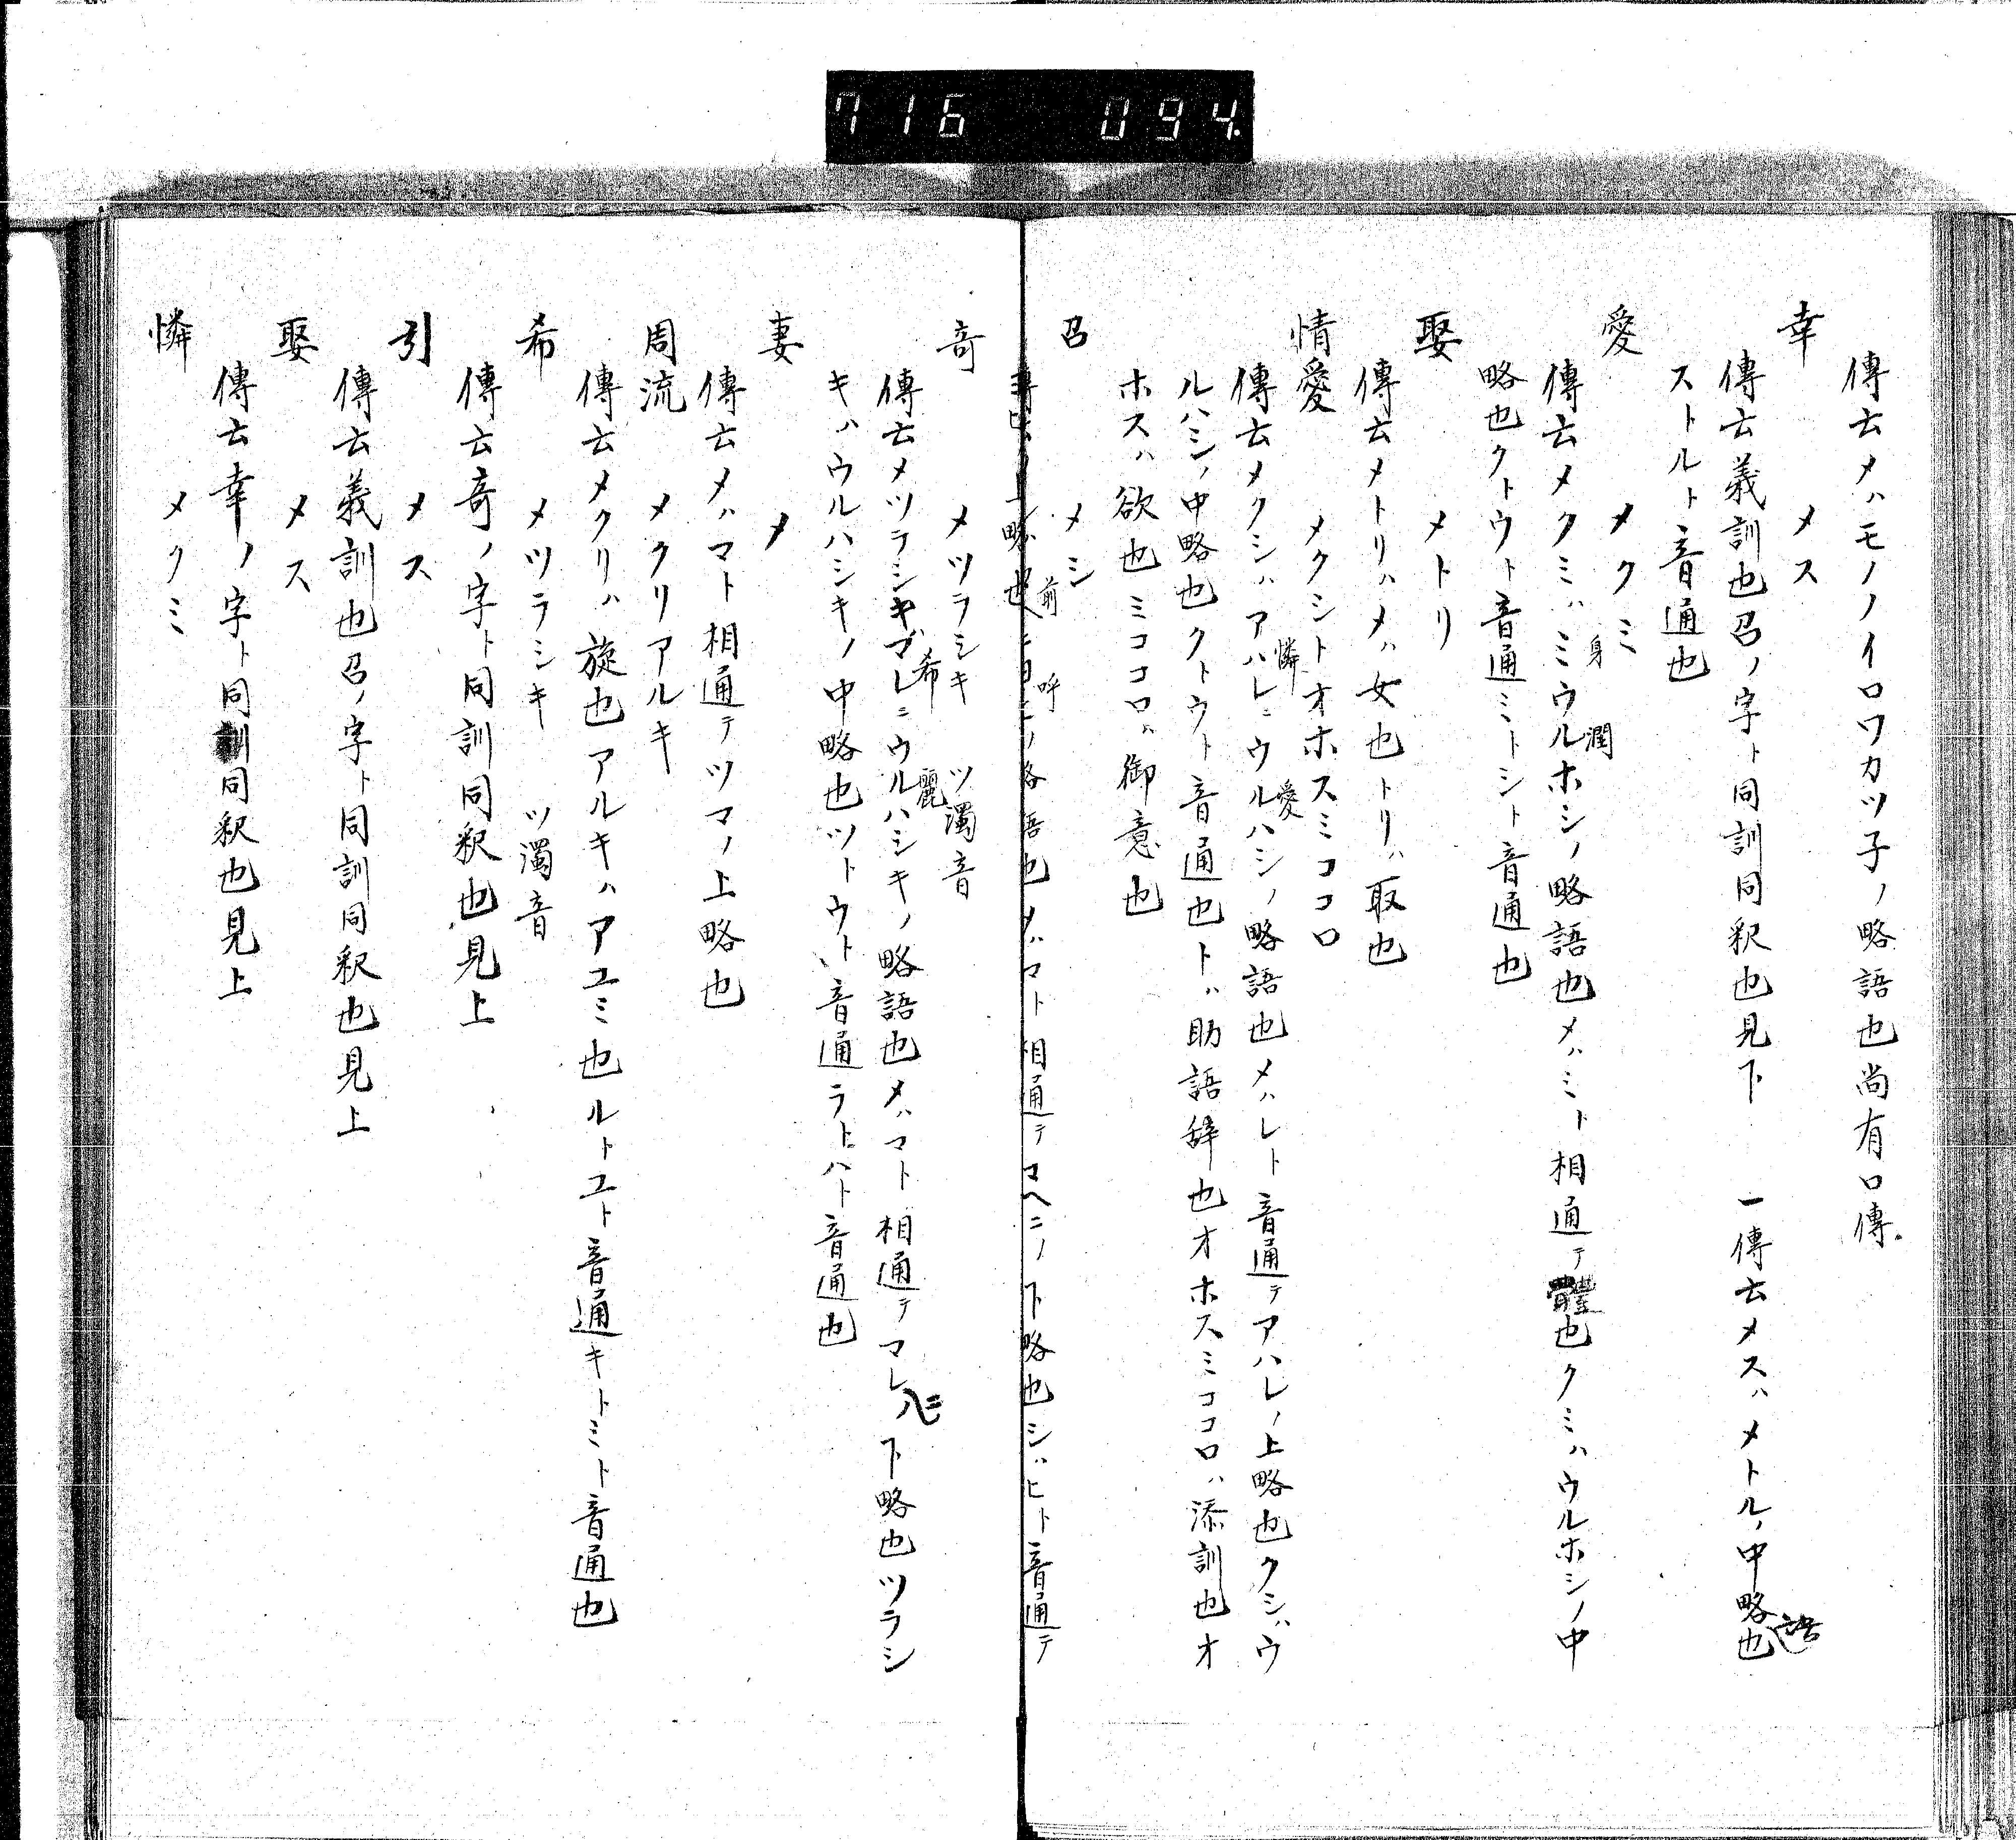 716 094.
傳云メハモノノイロワカツ子ノ略語也尚有口傳
幸 メス
傳云義訓也召ノ字ト同訓同釈也見下 一傳云メスハメトルノ中略語也
ストルト音通也
愛 メクミ
傳云メクミハミウルホシノ略語也メハミト相通テ體也クミハウルホシノ中
身 潤
略也クトウト音通ミトシト音通也
娶 メトリ
傳云メトリハメハ女也トリハ取也
情愛 メクシトオホスミココロ
傳云メクシハアハレニウルハシノ略語也メハレト音通テアハレノ上略也クシハウ
憐 愛
ルハシノ中略也クトウト音通也トハ助語辞也オホスミココロハ添訓也オ
ホスハ欲也ミココロハ御意也
召 メシ
前 呼
略語也メハマト相通テマヘニノ下略也シハヒト音通テ
奇 メツラシキ ツ濁音
傳云メツラシキハマレニウルハシキノ略語也メハマト相通テマレニノ下略也ツラシ
希 麗
キハウルハシキノ中略也ツトウト音通ラトハト音通也
妻 メ
傳云メハマト相通テツマノ上略也
周流 メクリアルキ
傳云メクリハ旋也アルキハアユミ也ルトユト音通キトミト音通也
希 メツラシキ ツ濁音
傳云奇ノ字ト同訓同釈也見上
引 メス
傳云義訓也召ノ字ト同訓同釈也見上
娶 メス
傳云幸ノ字ト同訓同釈也見上
憐 メクミ